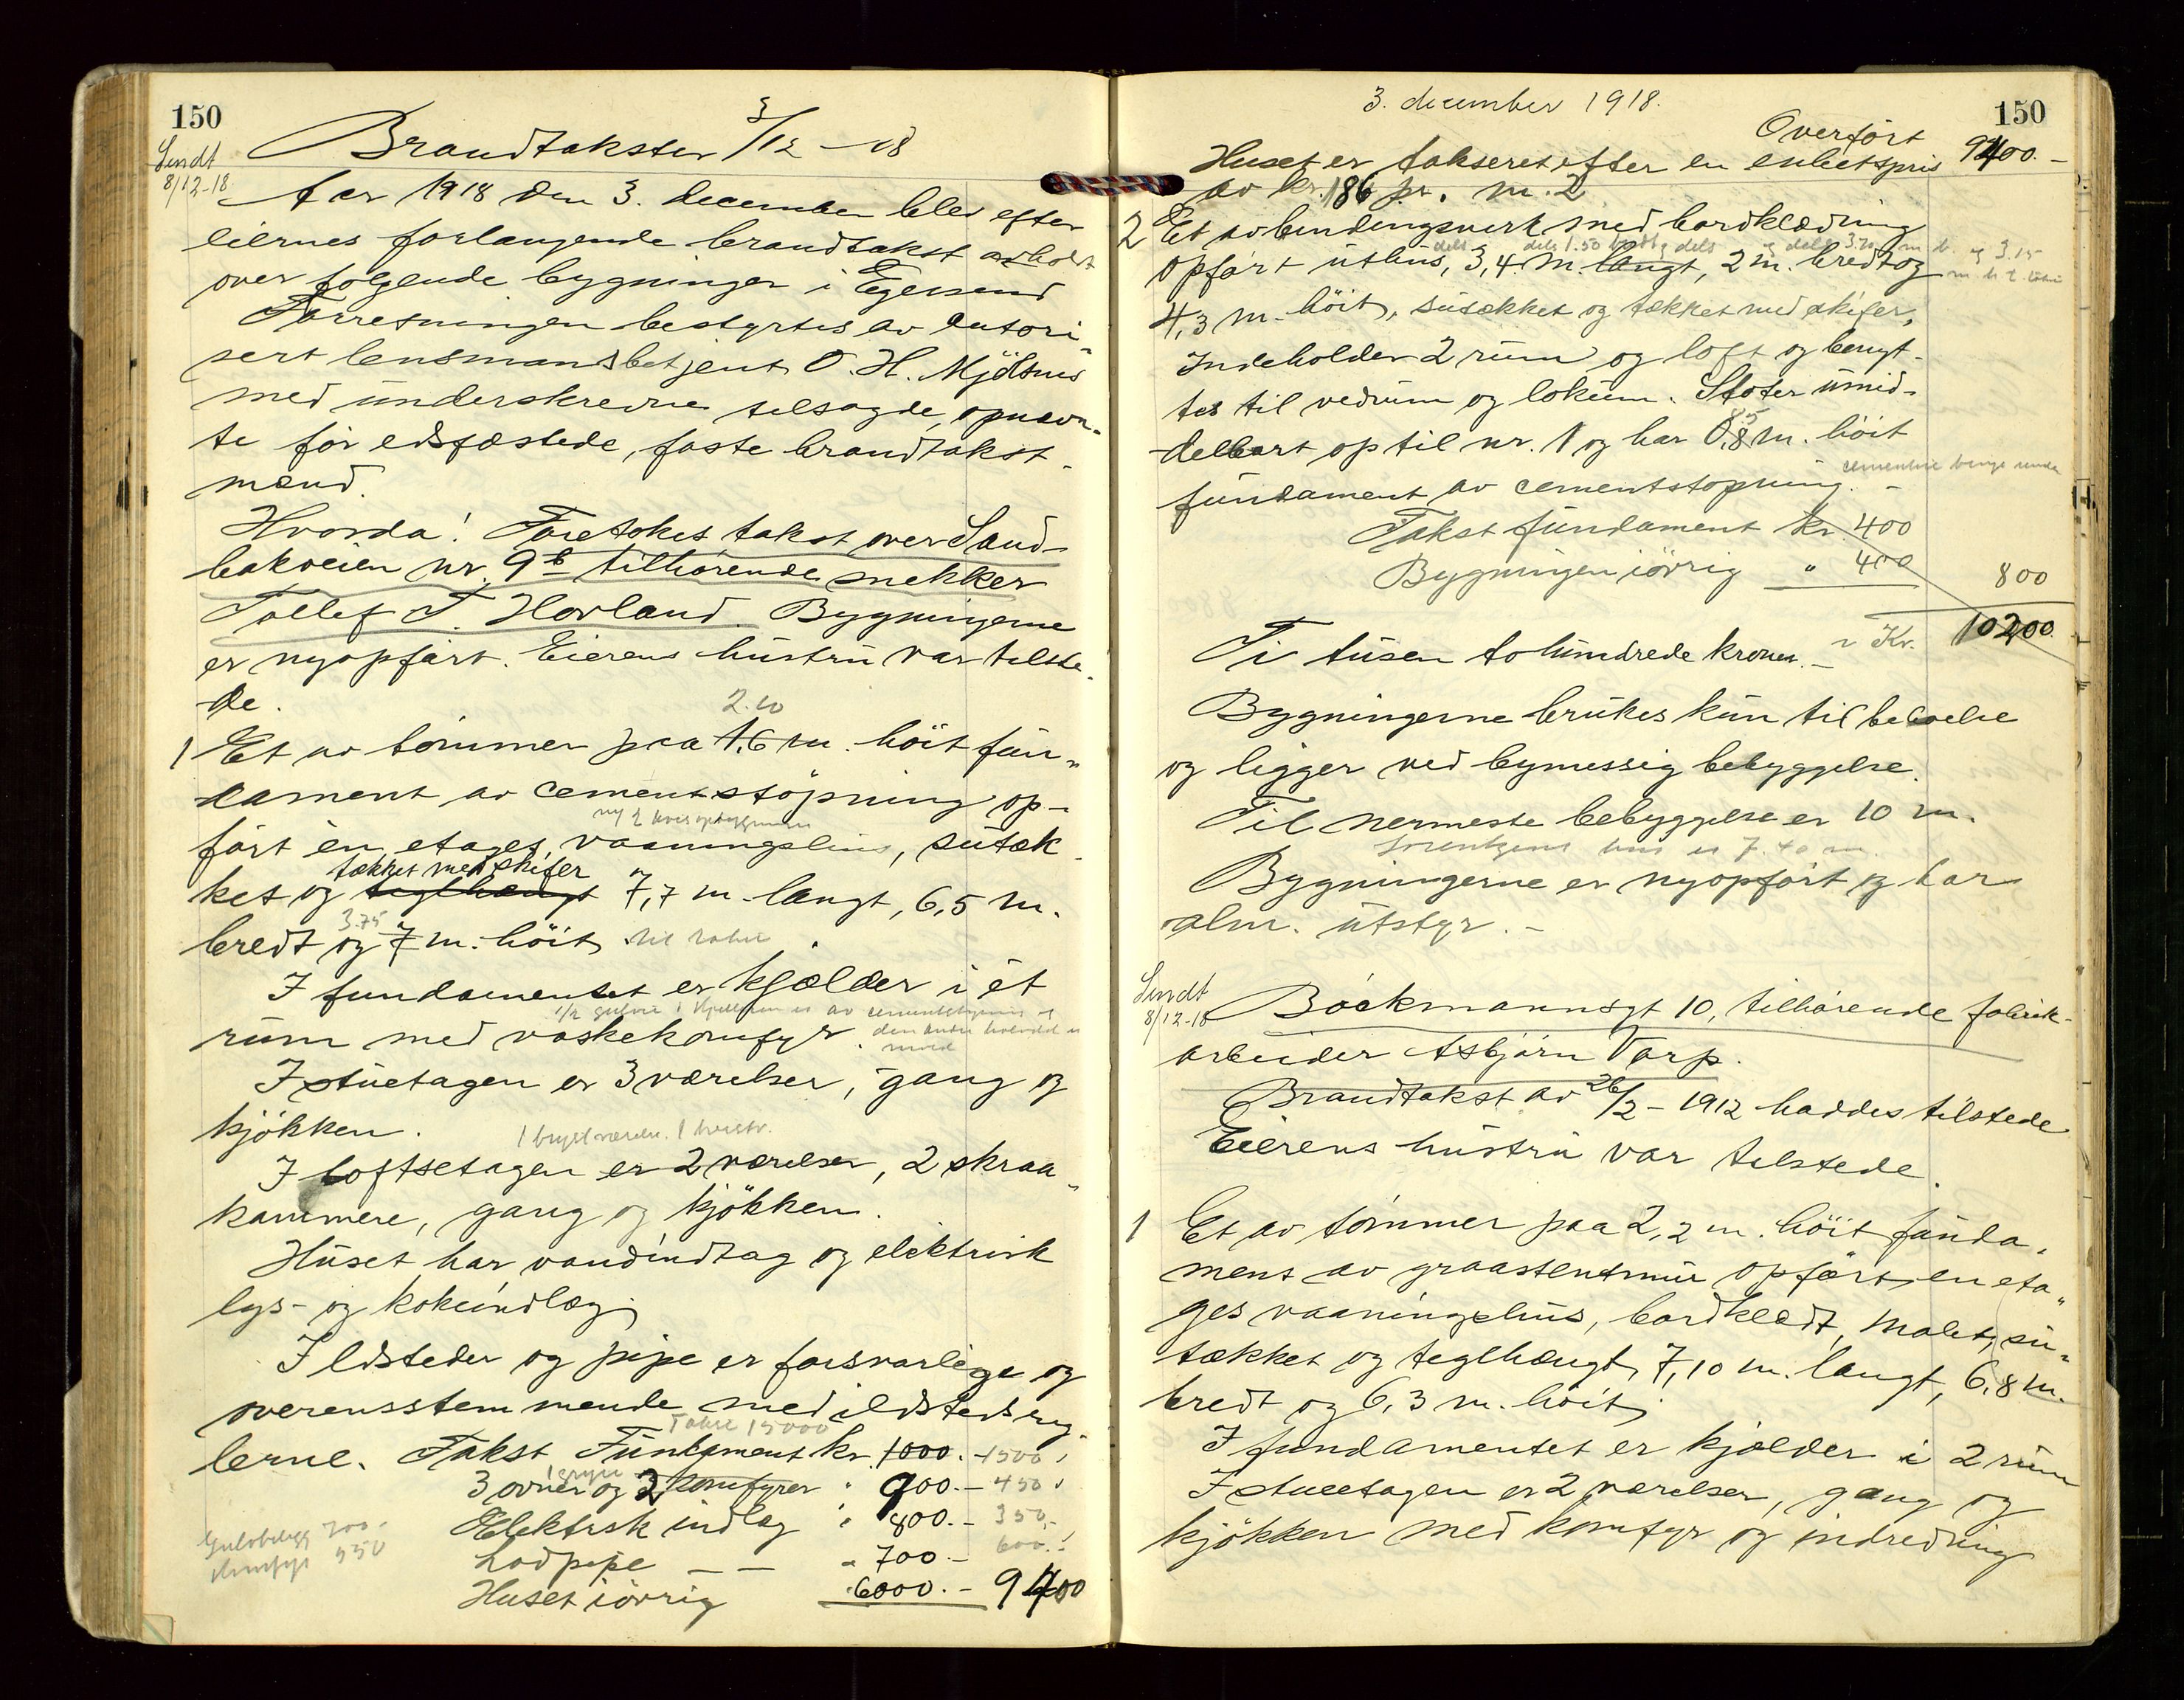 150
Sendt
8/12-18
Brandtakster 3/12 - 18
Aar 1918 den 3. december blev efter
eiernes forlangende brandtakst avholdt
over følgende bygninger i Egersund
Forretningen bestyrtes av autori-
sert lensmandsbetjent O. H. Mjölsnes
med underskrevne tilsagde, opnævn-
te før edsfæstede, faste brandtakst-
mænd.
Hvorda! Foretokes takst over Sand-
bakveien nr. 9b tilhörende snekker
Tollef T. Hovland. Bygningerne
er nyopført. Eierens hustru var tilste-
de.
2.10
1 Et av tömmer paa 1,6 m. höit fun-
dament av cementstöpning op-
ført en etages vaaningshus, sutæk-
tækket med skifer
ket og teglhængt 7,7 m. langt, 6,5 m.
3.75
bredt og 7 m. höit.
I fundamentet er kjælder i ét
rum med vaskekomfyr.
I stuetagen er 3 værelser, gang og
kjökken.
I loftsetagen er 2 værelser, 2 skraa-
kammere, gang og kjökken.
Huset har vandindtag og elektrisk
lys- og kokeindlæg.
Ildsteder og pipe er forsvarlige og
overensstemmende med ildstedsreg-
Takst 15000
lerne. Takst Fundament kr. 1000.- 1500
1 grype
3 ovner og 2 komfyrer " 900.- 450
Elektrisk indlæg " 800.- 350.-
Gulvbelegg 700.-
Komfyr 550
Lodpipe — — " 700.- 600.-
Huset iövrig " 6000.- 9400
3. december 1918.
150
Overfört 9400.-
Huset er takseret efter en enhetspris
av kr. 186 pr. m.2
2 Et av bindingsverk med bordklædning
dels dels 1.50 bredt og dels og dels 3.20 m b. og 3.15
opført uthus, 3,4 m. langt, 2 m. bredt og
4,3 m. höit, sutækket og tækket med skifer,
Indeholder 2 rum og loft og benyt-
tes til vedrum og lokum. Støter umid-
85
delbart op til nr. 1 og har 0,8 m. höit
fundament av cementstöpning.
Takst fundament kr. 400
Bygningen iövrig " 400 800
Ti tusen to hundrede kroner.- Kr. 10200
Bygningerne brukes kun til beboelse
og ligger ved bymessig bebyggelse.
Til nermeste bebyggelse er 10 m.
Bygningerne er nyopført og har
alm. utstyr.-
Sendt
8/12-18
Böckmannsgt 10, tilhörende fabrik-
arbeider Asbjørn Varp.
Brandtakst av 26/2 - 1912 haddes tilstede
Eierens hustru var tilstede.
1 Et av tömmer paa 2,2 m. höit funda-
ment av graastensmur opfört en eta-
ges vaaningshus, bordklædt, malet, su-
tækket og teglhængt, 7,10 m. langt, 6,8 m.
bredt og 6,3 m. höit.
I fundamentet er kjælder i 2 rum
I stueetagen er 2 værelser, gang og
kjökken med komfyr og indredning